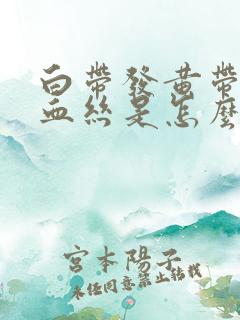 白帶發黃帶
血絲是怎麼
宮本陽子
未经同意禁止转载